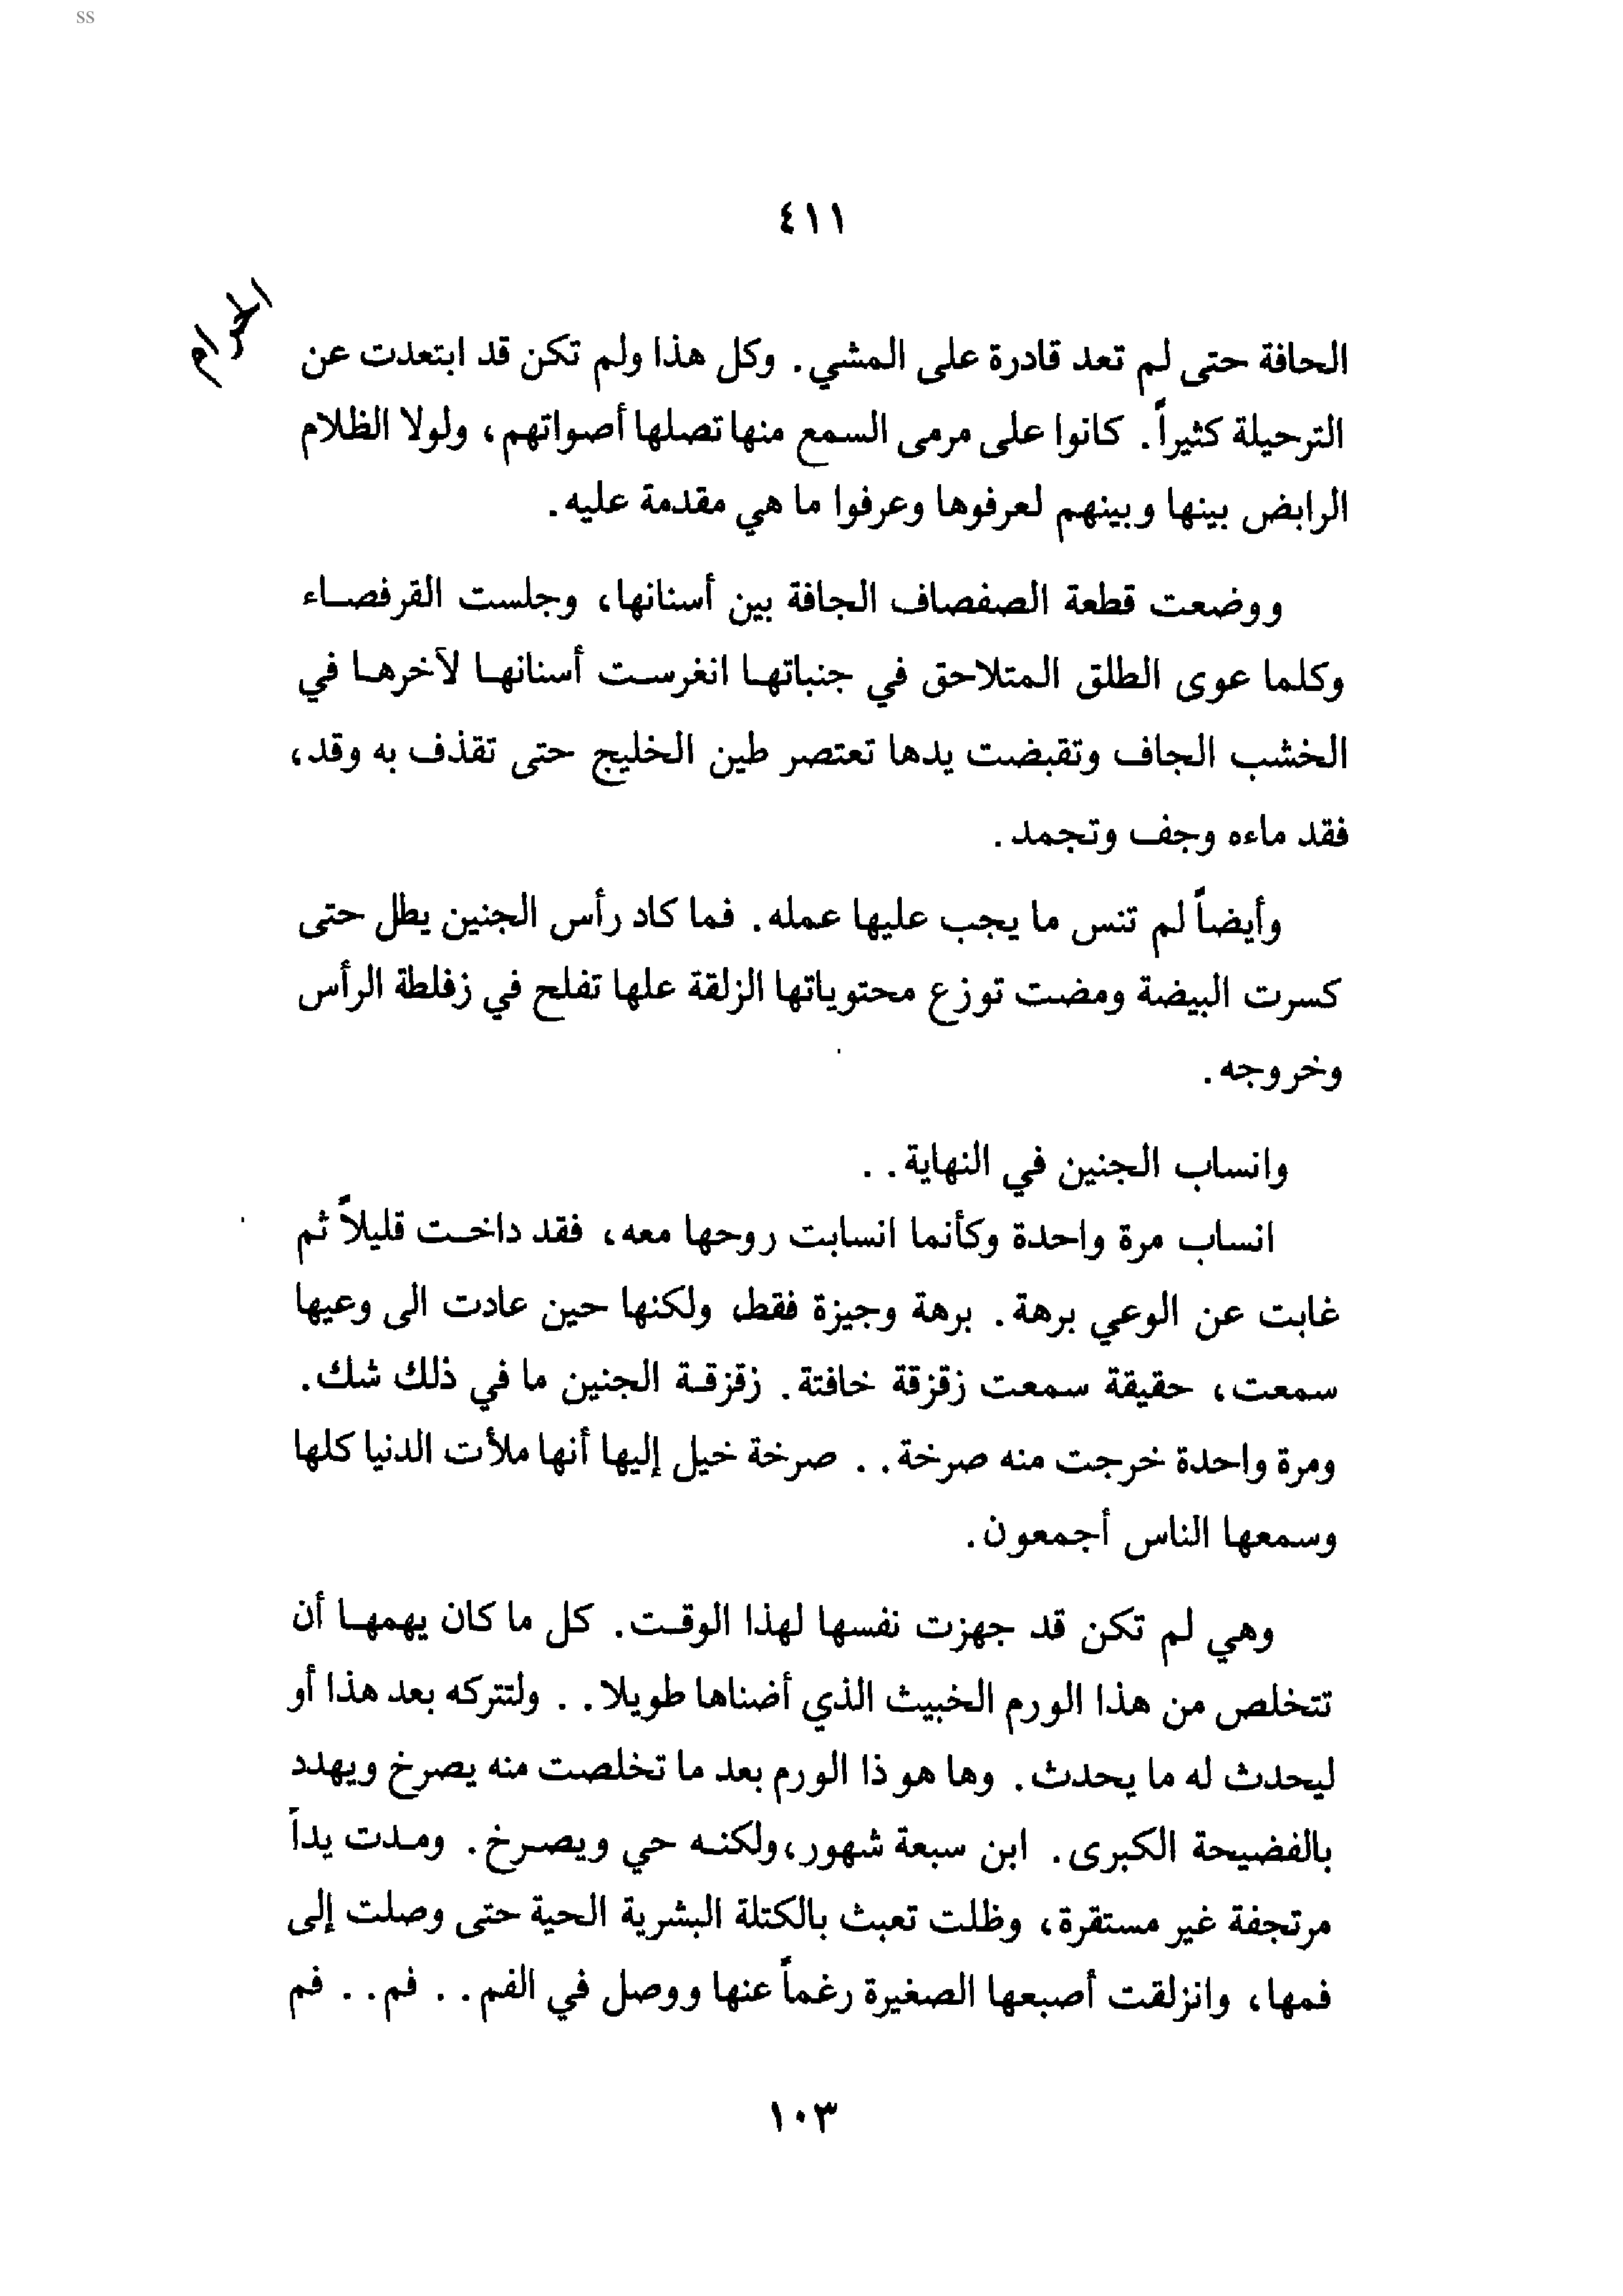 ss
٤١١
الحرام
الحافة حتى لم تعد قادرة على المشي. وكل هذا ولم تكن قد ابتعدت عن
الترحيلة كثيراً. كانوا على مرمى السمع منها تصلها أصواتهم، ولولا الظلام
الرابض بينها وبينهم لعرفوها وعرفوا ما هي مقدمة عليه.
ووضعت قطعة الصفصاف الجافة بين أسنانها، وجلست القرفصاء
وكلما عوى الطلق المتلاحق في جنباتها انغرست أسنانها لآخرها في
الخشب الجاف وتقبضت يدها تعتصر طين الخليج حتى تقذف به وقد،
فقد ماءه وجف وتجمد.
وأيضاً لم تنس ما يجب عليها عمله. فما كاد رأس الجنين يطل حتى
كسرت البيضة ومضت توزع محتوياتها الزلقة علها تفلح في زفلطة الرأس
وخروجه.
وانساب الجنين في النهاية..
انساب مرة واحدة وكأنما انسابت روحها معه، فقد داخت قليلاً ثم
غابت عن الوعي برهة. برهة وجيزة فقط، ولكنها حين عادت الى وعيها
سمعت، حقيقة سمعت زقزقة خافتة. زقزقة الجنين ما في ذلك شك.
ومرة واحدة خرجت منه صرخة.. صرخة خيل إليها أنها ملأت الدنيا كلها
وسمعها الناس أجمعون.
وهي لم تكن قد جهزت نفسها لهذا الوقت. كل ما كان يهمها أن
تتخلص من هذا الورم الخبيث الذي أضناها طويلا.. ولتتركه بعد هذا أو
ليحدث له ما يحدث. وها هو ذا الورم بعد ما تخلصت منه يصرخ ويهدد
بالفضيحة الكبرى. ابن سبعة شهور، ولكنه حي ويصرخ. ومدت يداً
مرتجفة غير مستقرة، وظلت تعبث بالكتلة البشرية الحية حتى وصلت إلى
فمها، وانزلقت أصبعها الصغيرة رغماً عنها ووصل في الفم.. فم.. فم
١٠٣